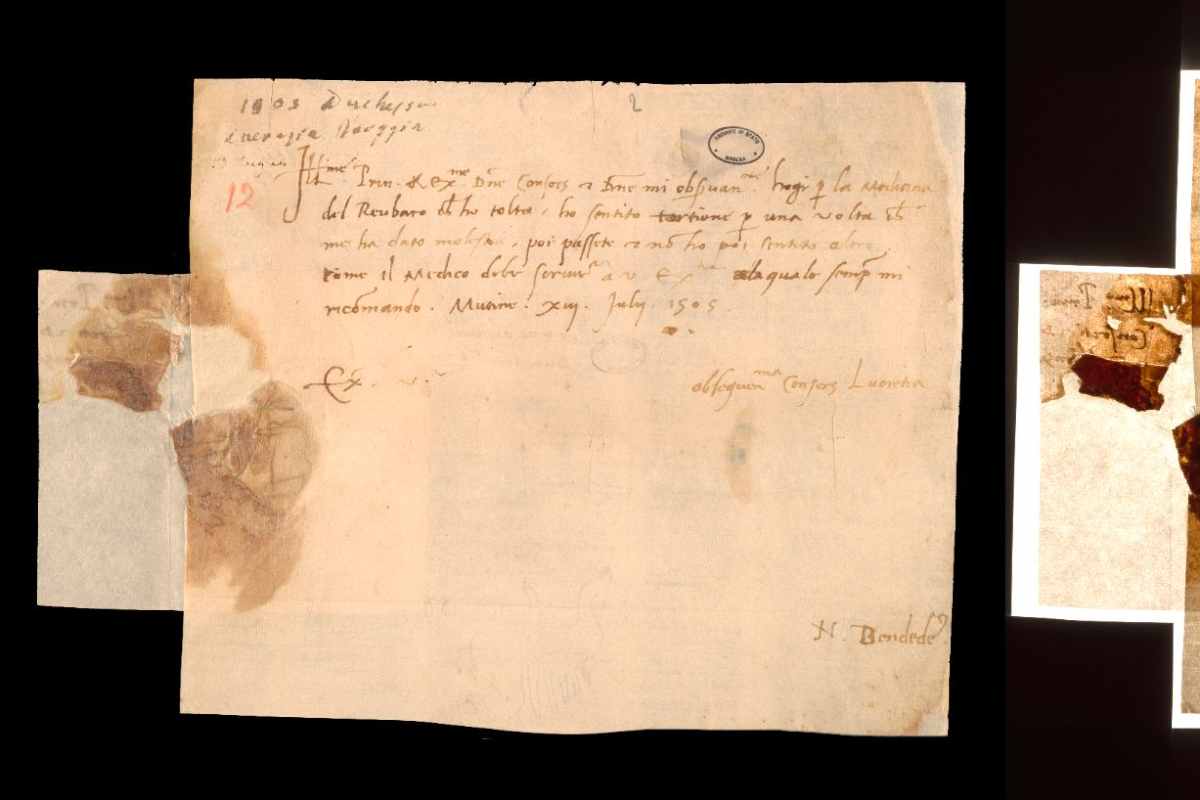 1505 Duchessa
2
ARCHIVIO DI STATO
MODENA
12
Ill.me Prin. & Ex.me Dñe Consors & Dñe mi obseruan.me hogi p la Medicina
del Reubaro ch ho tolta, ho sentito tortione p una volta ch
me ha dato molestia, poi passete & nõ ho poi sentito altro
come il Medico debe scriuer a v. Ex.tia ala quale semp mi
ricõmando. Mutine. xiij. Julij. 1505.
Ex. v.
obsequen.ma Consors Lucretia
N. Bendedeˀ